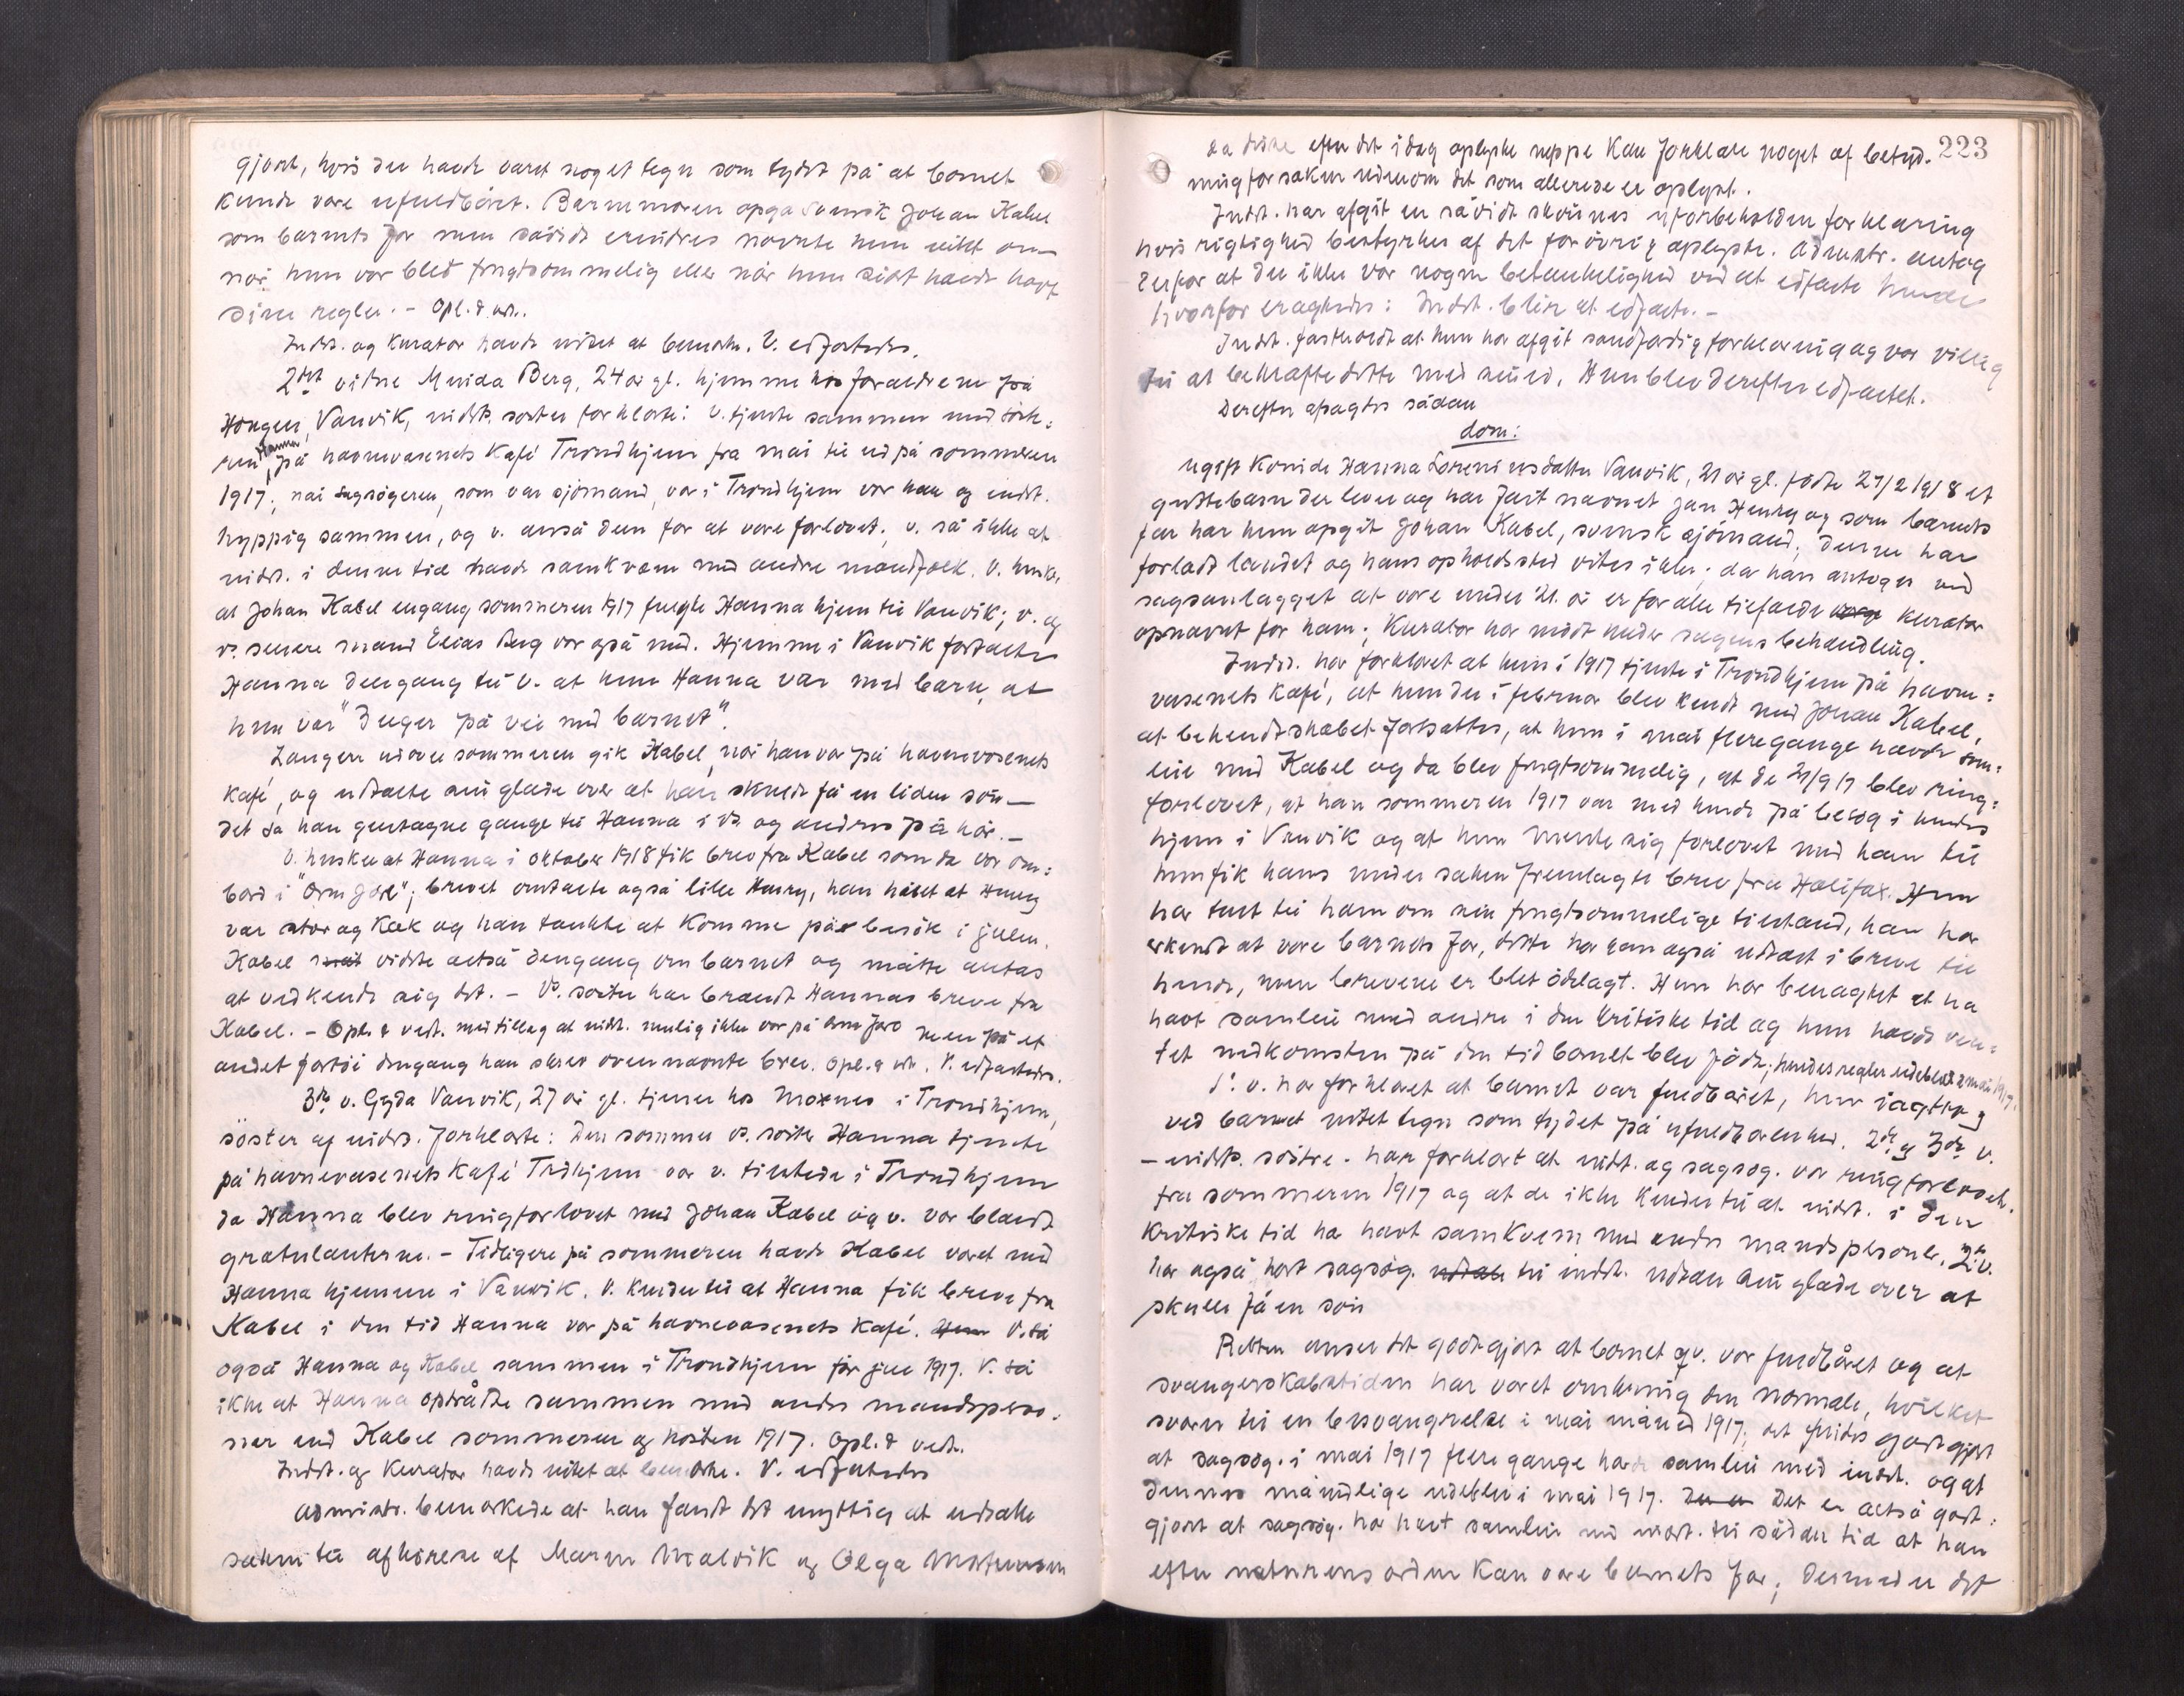 gjort, hvis der havde været noget tegn som tydet på at barnet
kunde være ufuldbåret. Barnemoren opga svensk Johan Kabel
som barnets far men såvidt erindres nævnte hun intet om
når hun var blet frugtsommelig eller når hun sidst havde havt
sine regler. - Opl. & vedt.
Indst. og kurator havde intet at bemerke. V. edfæstedes.
2det vidne Merida Berg, 24 år gl. hjemme hos forældrene på
Haugen, Vanvik, indst.s søster forklarte: V. tjente sammen med søste-
ren Hanna på havnevæsenets kafé Trondhjem fra mai til ud på sommeren
1917; når sagsøgeren, som var sjømand, var i Trondhjem var han og indst.
hyppig sammen, og v. anså dem for at være forlovet; v. så ikke at
indst. i denne tid havde samkvæm med andre mandfolk. V. husker
at Johan Kabel engang sommeren 1917 fulgte Hanna hjem til Vanvik; v. og
v.s senere mand Elias Berg var også med. Hjemme i Vanvik fortalte
Hanna dengang til v. at hun Hanna var med barn, at
hun var "3 uger på vei med barnet".
Længere udover sommeren gik Kabel, når han var på havnevæsenets
kafé, og udtalte sin glæde over at han skulde få en liden søn -
det sa han gjentagne gange til Hanna i v.s og andres påhør. -
V. husker at Hanna i oktober 1918 fik brev fra Kabel som da var om-
bord i "Ormjarl"; brevet omtalte også lille Henry, han håbet at Henry
var stor og kjæk og han tænkte at komme på besøk i julen.
Kabel vidste altså dengang om barnet og måtte antas
at vedkende sig det. - V.s søster har brændt Hannas breve fra
Kabel. - Opl. & vedt. med tillæg at indst. mulig ikke var på Ormjarl men på et
andet fartøi dengang han skrev ovennævnte brev. Opl. & vedt. V. edfæstedes.
3die v. Gyda Vanvik, 27 år gl. tjener hos Moxnes i Trondhjem,
søster af indst. forklarte: Den sommer v.s søster Hanna tjente
på havnevæsenets kafé Trdhjem var v. tilstede i Trondhjem
da Hanna blev ringforlovet med Johan Kabel og v. var blandt
gratulanterne. - Tidligere på sommeren havde Kabel været med
Hanna hjemme i Vanvik. V. kjender til at Hanna fik breve fra
Kabel i den tid Hanna var på havnevæsenets kafé. Hun V. så
også Hanna og Kabel sammen i Trondhjem før jul 1917. V. så
ikke at Hanna optrådte sammen med andre mandsperso-
ner end Kabel sommeren og høsten 1917. Opl. & vedt.
Indst. og kurator havde intet at bemerke. V. edfæstedes
Administr. bemærkede at han fandt det unyttig at udsætte
saken til afhørelse af Maren Malvik og Olga Mortensen
223
da disse efter det idag oplyste neppe kan forklare noget af betyd-
ning for saken udenom det som allerede er oplyst.
Indst. har afgit en såvidt skjønnes uforbeholden forklaring
hvis rigtighed bestyrkes af det forøvrig oplyste. Administr. antog
derfor at der ikke var nogen betænkelighed ved at edfæste hende
hvorfor eragtedes: Indst. blir at edfæste. -
Indst. fastholdt at hun har afgit sandfærdig forklaring og var villig
til at bekræfte dette med sin ed. Hun blev derefter edfæstet.
Derefter afsagtes sådan
dom:
Ugift kvinde Hanna Loreninsdatter Vanvik, 21 år gl. fødte 27/2 1918 et
guttebarn der lever og har fået navnet Jan Henry og som barnets
far har hun opgit Johan Kabel, svensk sjømand; denne har
forladt landet og hans opholdssted vites ikke; da han antoges ved
sagsanlægget at være under 21 år er for alle tilfælde værge kurator
opnævnt for ham; kurator har møtt under sagens behandling.
Indst. har forklaret at hun i 1917 tjente i Trondhjem på havne-
væsenets kafé, at hun der i februar blev kendt med Johan Kabel,
at bekendtskabet fortsattes, at hun i mai flere gange havde sam-
leie med Kabel og da blev frugtsommelig, at de 21/9 17 blev ring-
forlovet, at han sommeren 1917 var med hende på besøg i hendes
hjem i Vanvik og at hun mente sig forlovet med ham til
hun fik hans under saken fremlagte brev fra Halifax. Hun
har sagt til ham om sin frugtsommelige tilstand, han har
erkendt at være barnets far, dette har han også udtalt i breve til
hende, men brevene er blet ødelagt. Hun har benægtet at ha
havt samleie med andre i den kritiske tid og hun havde ven-
tet nedkomsten på den tid barnet blev født; hendes regler udeblev i mai 1917.
1ste v. har forklaret at barnet var fuldbåret, hun iagttog
ved barnet intet tegn som tydet på ufuldbårenhed. 2det og 3die v.
- indst.s søstre - har forklart at indst. og sagsøg. var ringforlovet
fra sommeren 1917 og at de ikke kender til at indst. i den
kritiske tid ha havt samkvem med andre mandspersoner. 2det v.
har også hørt sagsøg. udtale til indst. udtale sin glæde over at
skulle få en søn
Retten anser det godtgjort at barnet var fuldbåret og at
svangerskabstiden har været omkring den normale, hvilket
svarer til en besvangrelse i mai måned 1917; det findes godtgjort
at sagsøg. i mai 1917 flere gange havde samleie med indst. og at
dennes månedlige udeblev i mai 1917. Det er altså godt-
gjort at sagsøg. har havt samleie med indst. til sådan tid at han
efter naturens orden kan være barnets far; desmeder det